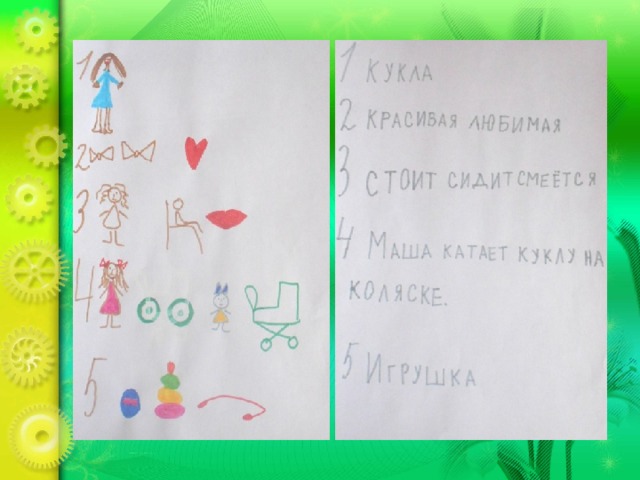 1
2
3
4
5
1 КУКЛА
2 КРАСИВАЯ ЛЮБИМАЯ
3 СТОИТ СИДИТ СМЕЁТСЯ
4 МАША КАТАЕТ КУКЛУ НА
КОЛЯСКЕ.
5 ИГРУШКА